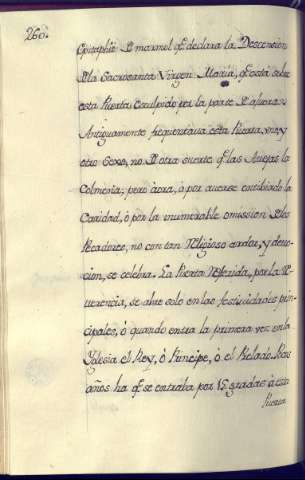 266.
Epitaphio D marmol q.e declara la Descencion
D la Sacrosanta Virgen Maria, q.e està sobre
esta Puerta Esculpido por la parte D afuera.
Antiguamente freqüentava esta Puerta, uno, y
otro Sexo, no D otra suerte q.e las Avejas la
Colmena; pero aora, ò por averse entibiado la
Caridad, ò por la inumerable omission D los
Pecadores, no con tan Religioso ardor, y devo-
cion, se celebra. La Puerta Referida, por la Re-
verencia, se abre solo en las festividades prin-
cipales, ò quando entra la primera vez en la
Yglesia el Rey, ò Principe, ò el Prelado. Pocos
años ha q.e se entraba por 15 gradas à esta
Puerta